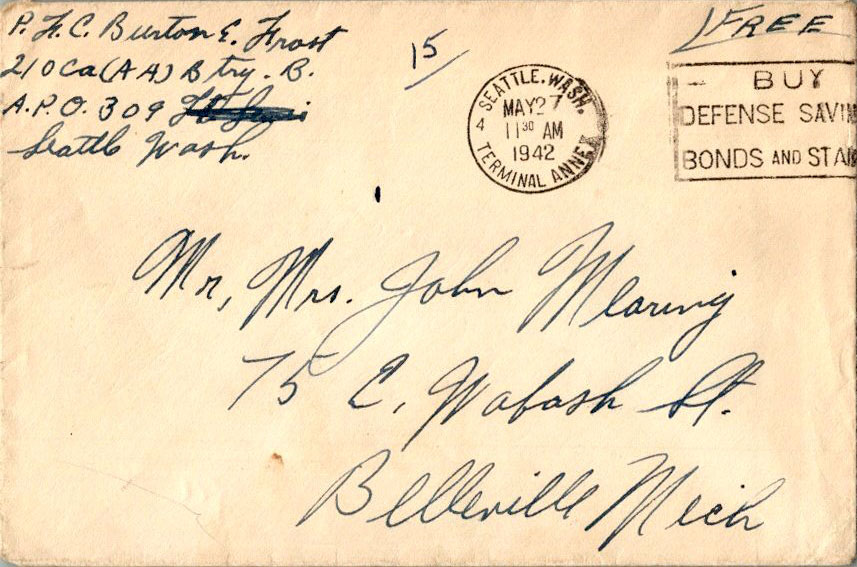 P.F.C. Burton E. Frost
210 Ca (AA) Btry. B.
A.P.O. 309
Seattle Wash.
15
FREE
SEATTLE. WASH.
MAY 27
11 30 AM
1942
4
TERMINAL ANNEX
BUY
DEFENSE SAVIN
BONDS AND STAM
Mr, Mrs. John Mearing
75 E, Wabash St.
Belleville Mich